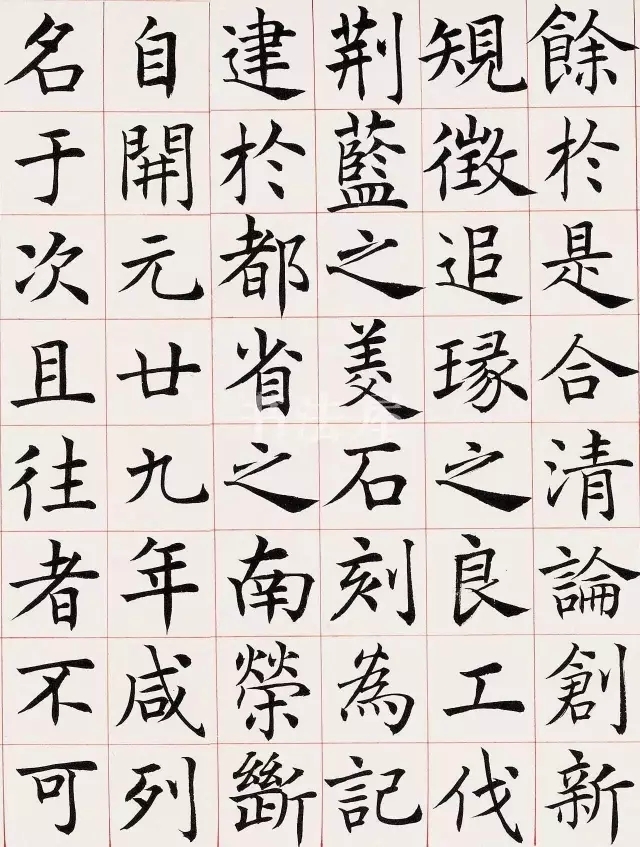 餘於是合清論創新
規徵追瑑之良工伐
荆藍之美石刻為記
建於都省之南榮斷
自開元廿九年咸列
名于次且往者不可
书法库